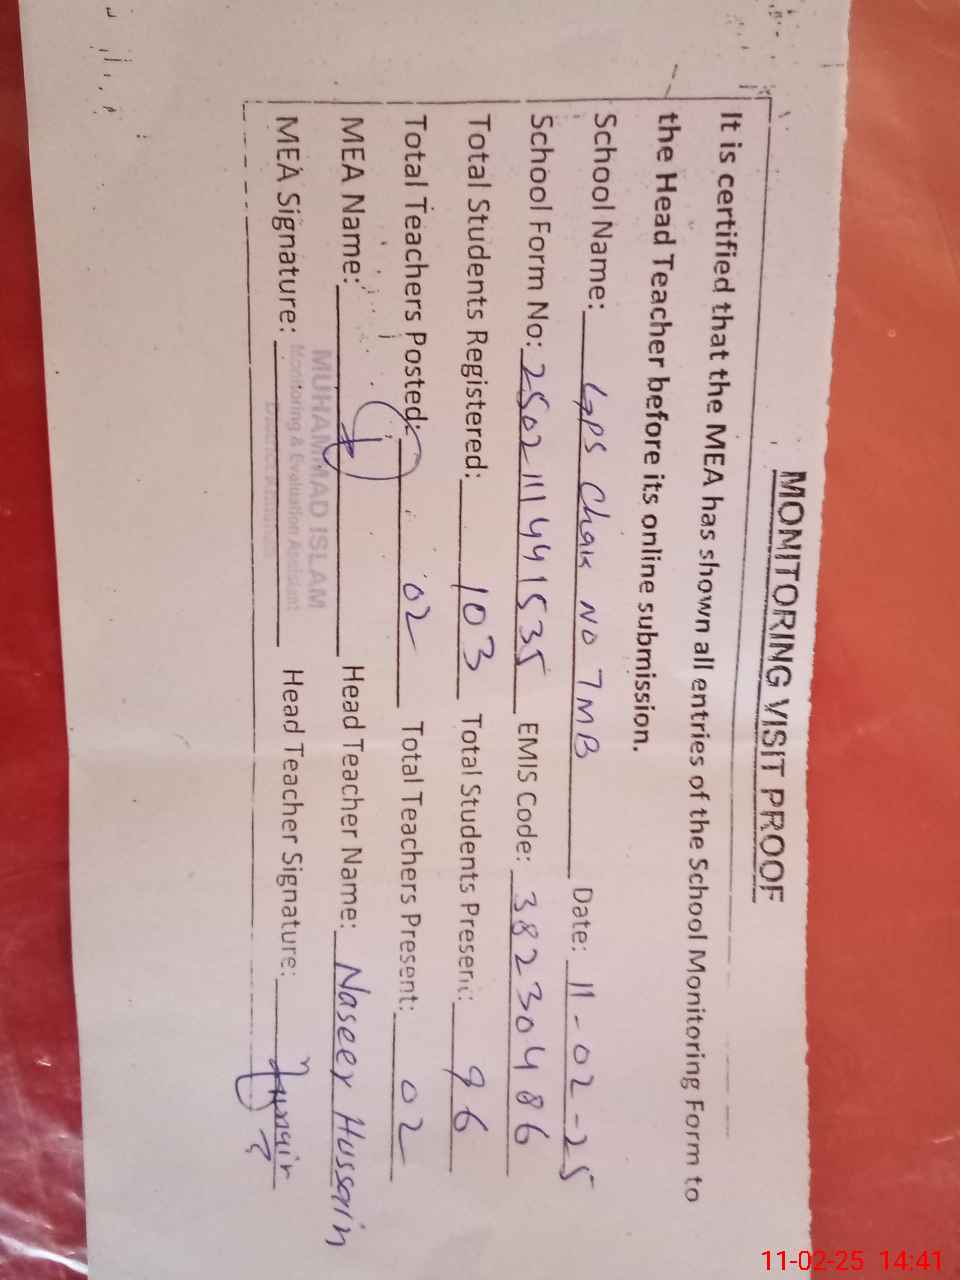 MONITORING VISIT PROOF
It is certified that the MEA has shown all entries of the School Monitoring Form to
the Head Teacher before its online submission.
School Name: GPS Chak No 7MB Date: 11-02-25
School Form No: 2502111441535 EMIS Code: 38230486
Total Students Registered: 103 Total Students Present: 96
Total Teachers Posted: 02 Total Teachers Present: 02
MEA Name: Head Teacher Name: Naseer Hussain
MUHAMMAD ISLAM
Monitoring & Evaluation Assistant
MEA Signature: Head Teacher Signature:
11-02-25 14:41